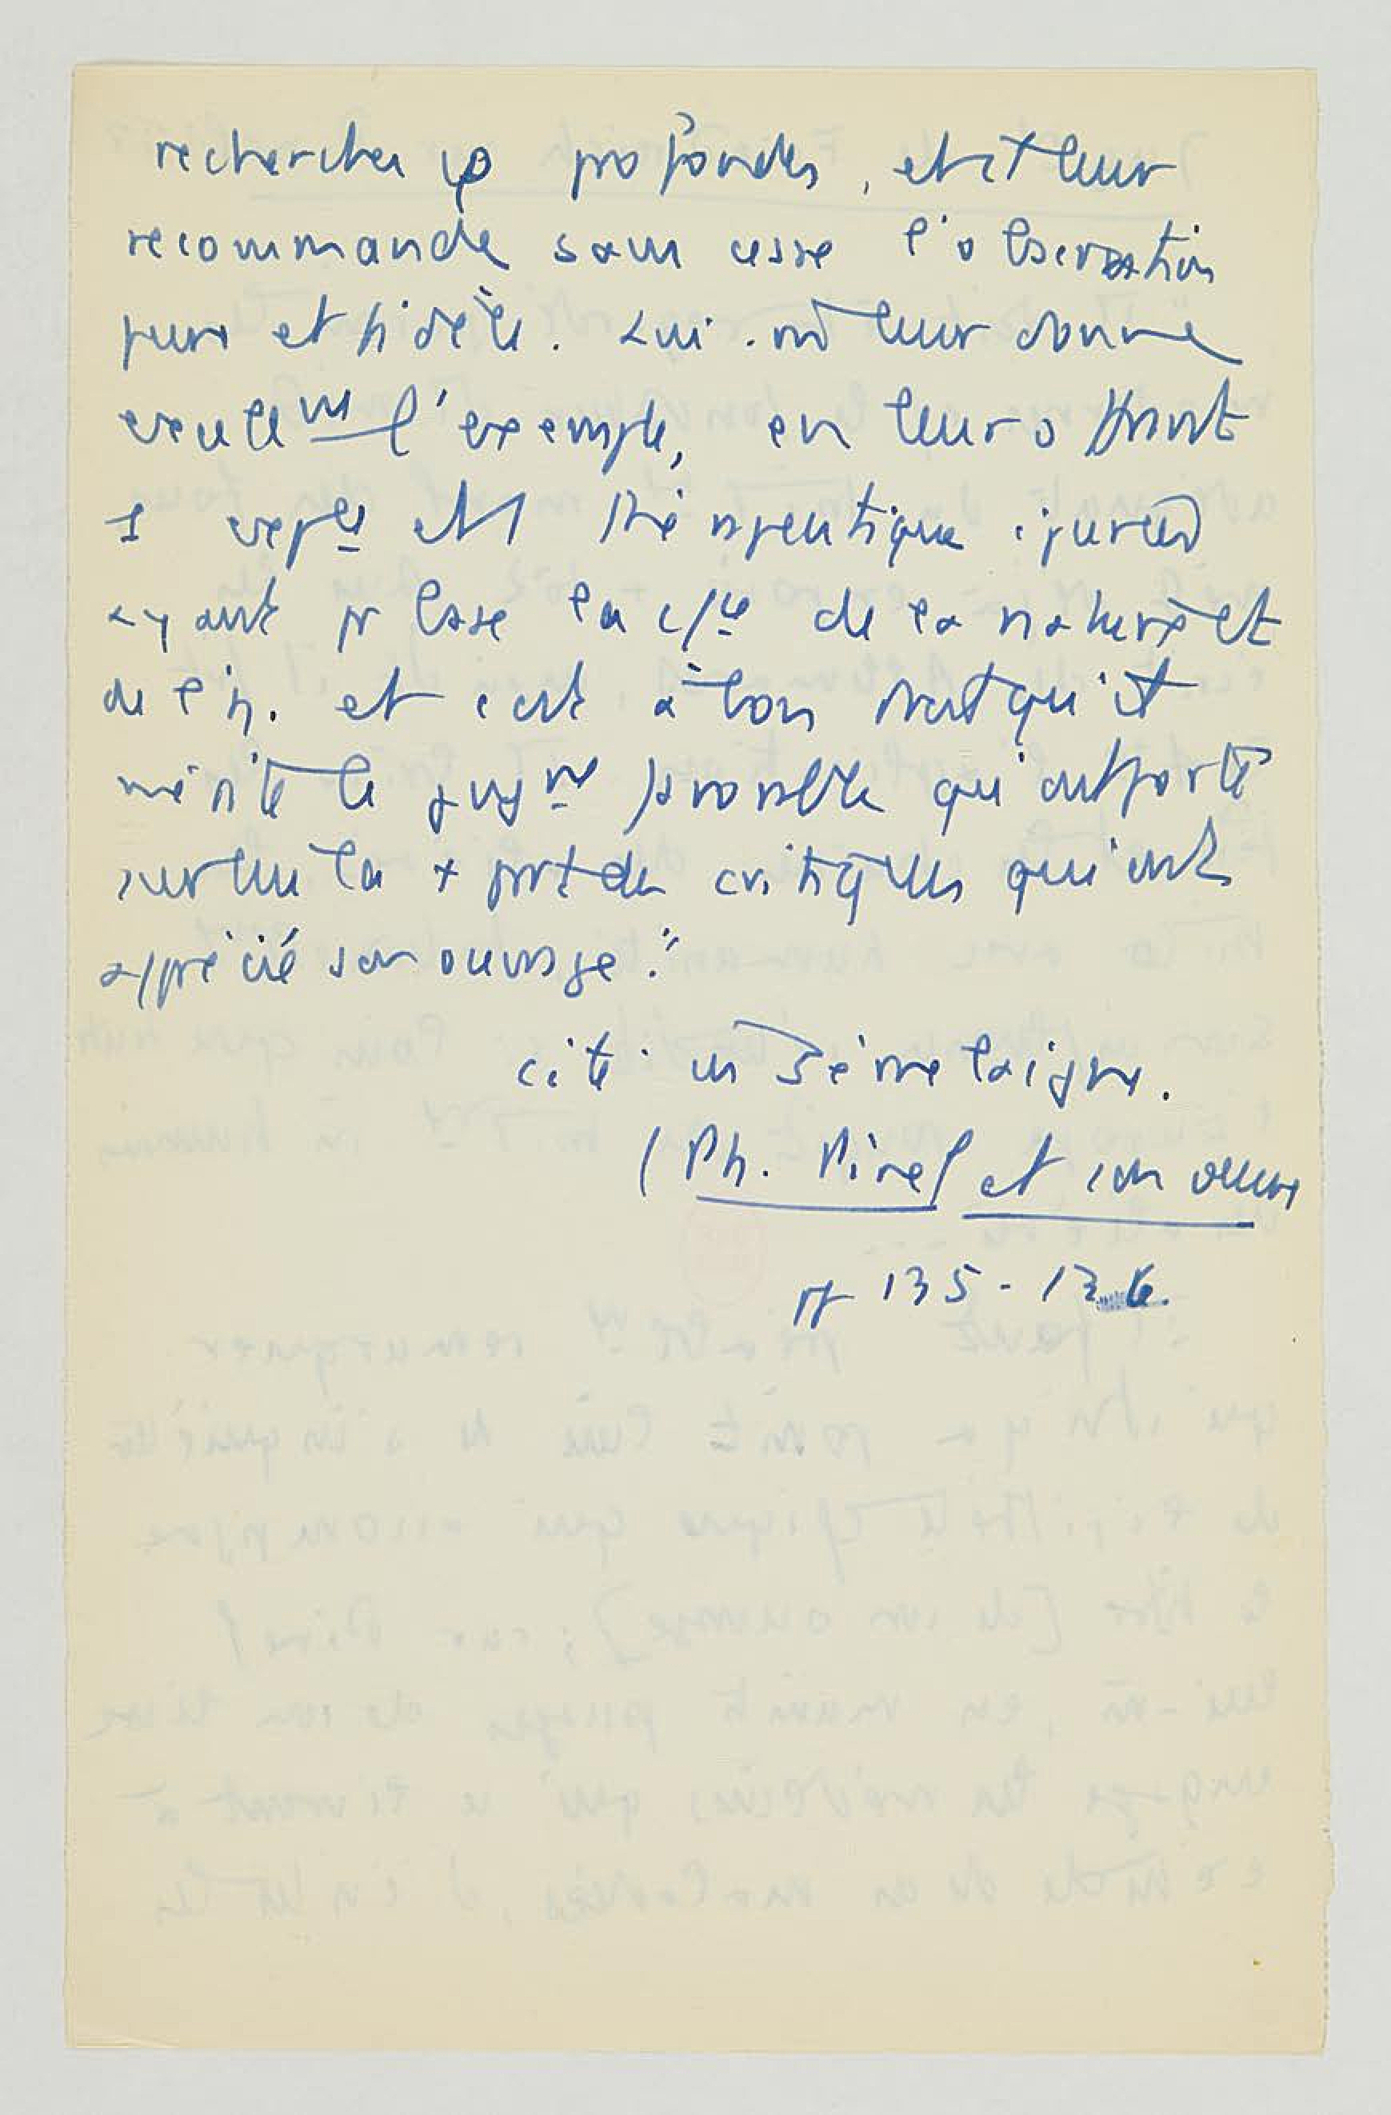 recherches φ profondes, et il leur
recommande sans cesse l'observation
pure et fidèle. Lui-m̂ leur donne
l'exemple, en leur offrant
1 et 1 thérapeutique
ayant pr base la de la nature et
de l'h. et c'est à bon droit qu'il
mérite le jugmt favorable qu'ont porté
sur lui la + part des critiques qui ont
apprécié son ouvrage."
cité in Sémelaigne.
(Ph. Pinel et son œuvre
pp 135-136.